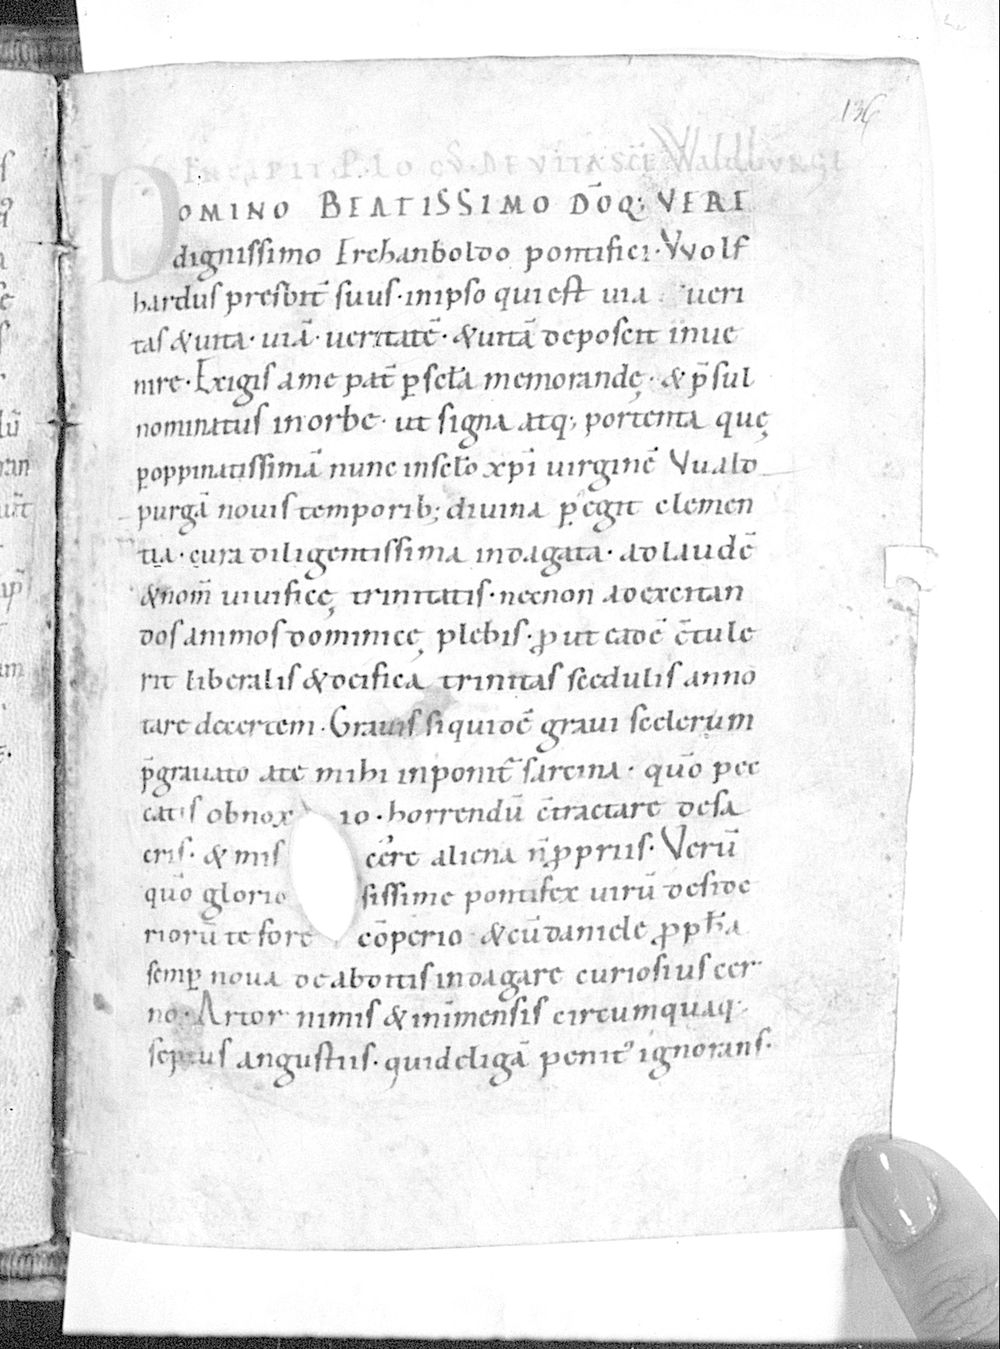 136
INCIPIT PLOGUS DE VITA SCE WALDBURGE
DOMINO BEATISSIMO DŌQ; VERE
dignissimo Erchanboldo pontifici · VVolf
hardus presbit̄ suus · inipso qui est uia ueri
tas & uita · uiā · ueritatē · & uitā deposcit inue
nire · Exigis ame pat̄ p̄ sc̄la memorandę · & p̄sul
nominatus in orbe · ut signa atq; portenta quę
p̱oppinatissimā nunc insc̄lo xp̄i uirginē VVald
purgā nouis temporib; diuina p̱egit clemen
tia · cura diligentissima indagata · adlaudē
& nom̄ uiuificę trinitatis · necnon adexcitan
dos animos dominicę plebis · ꝓut eadē c̄tule
rit liberalis & deifica trinitas scedulis anno
tare decertem · Grauis siquidē graui scelerum
p̄grauato ate mihi inponit̄ sarcina · quō pec
catis obnoxio · horrendū c̄tractare desa
cris · & miscere aliena n̄ ꝓpriis · Verū
quō gloriosissime pontifex uirū deside
riorū te fore cōperio · & cū daniele ꝓph̄a
semp̱ noua de abditis indagare curiosius cer
no · Artor nimis & inmensis circumquaq;
septus angustiis · quid eligā penit᾽ ignorans ·